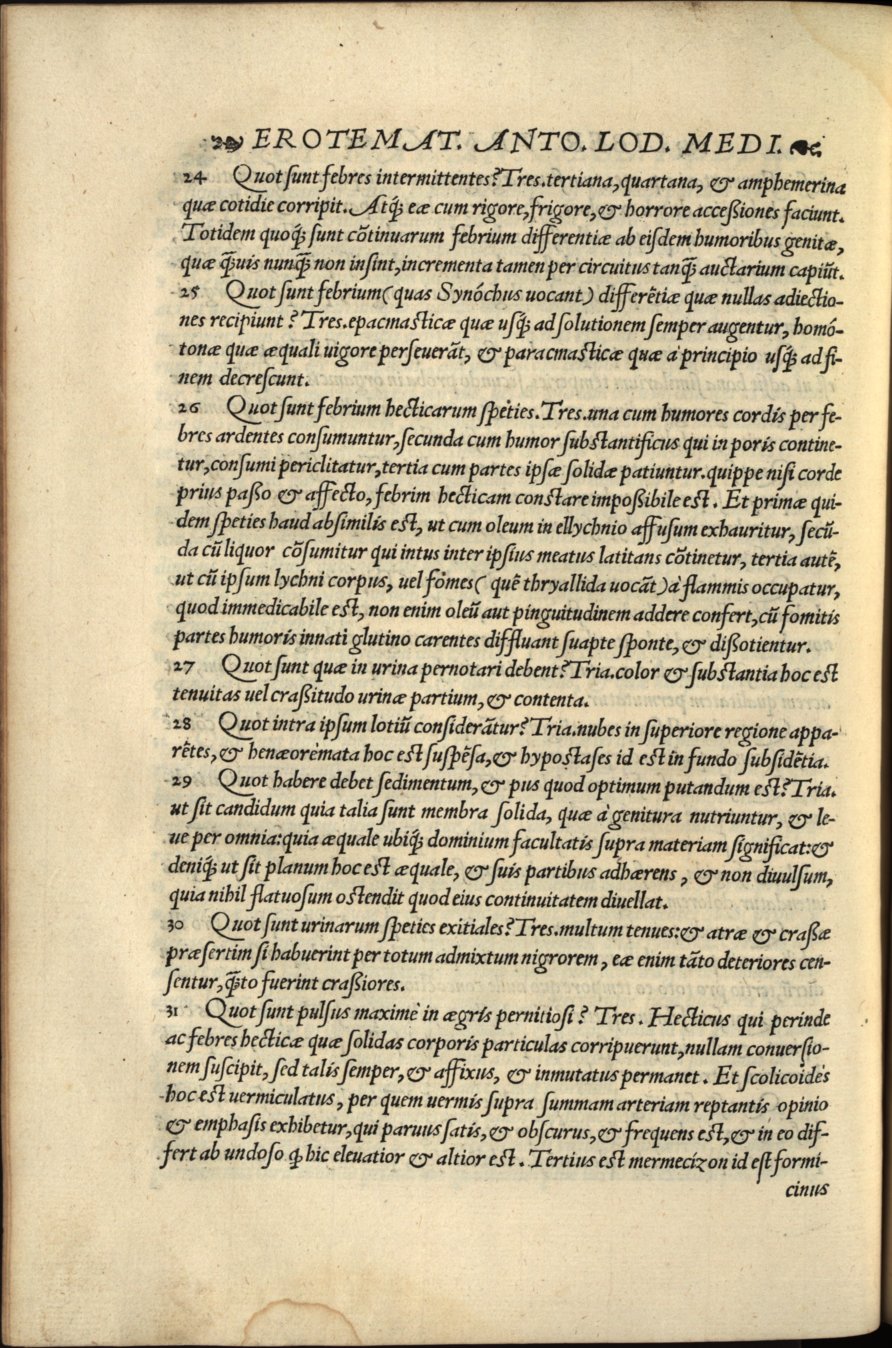 EROTEMAT. ANTO. LOD. MEDI.
24 Quot sunt febres intermittentes? Tres. tertiana, quartana, & amphemerina
quæ cotidie corripit. Atq́; eæ cum rigore, frigore, & horrore acceßiones faciunt.
Totidem quoq́; sunt cõtinuarum febrium differentiæ ab eisdem humoribus genitæ,
quæ q̃uis nunq̃ non insint, incrementa tamen per circuitus tanq̃ auctarium capiũt.
25 Quot sunt febrium (quas Synóchus uocant) differẽtiæ quæ nullas adiectio-
nes recipiunt? Tres. epacmasticæ quæ usq́; ad solutionem semper augentur, homó-
tonæ quæ æquali uigore perseuerãt, & paracmasticæ quæ à principio usq́; ad fi-
nem decrescunt.
26 Quot sunt febrium hecticarum spèties. Tres. una cum humores cordis per fe-
bres ardentes consumuntur, secunda cum humor substantificus qui in poris contine-
tur, consumi periclitatur, tertia cum partes ipsæ solidæ patiuntur. quippe nisi corde
prius paßo & affecto, febrim hecticam constare impoßibile est. Et primæ qui-
dem speties haud absimilis est, ut cum oleum in ellychnio affusum exhauritur, secũ-
da cũ liquor cõsumitur qui intus inter ipsius meatus latitans cõtinetur, tertia autẽ,
ut cũ ipsum lychni corpus, uel fomes (quẽ thryallida uocãt) à flammis occupatur,
quod immedicabile est, non enim oleũ aut pinguitudinem addere confert, cũ fomitis
partes humoris innati glutino carentes diffluant suapte sponte, & dißotientur.
27 Quot sunt quæ in urina pernotari debent? Tria. color & substantia hoc est
tenuitas uel craßitudo urinæ partium, & contenta.
28 Quot intra ipsum lotiũ considerãtur? Tria. nubes in superiore regione appa-
rẽtes, & henæorèmata hoc est suspẽsa, & hypostases id est in fundo subsidẽtia.
29 Quot habere debet sedimentum, & pus quod optimum putandum est? Tria.
ut sit candidum quia talia sunt membra solida, quæ à genitura nutriuntur, & le-
ue per omnia: quia æquale ubiq́; dominium facultatis supra materiam significat: &
deniq́; ut sit planum hoc est æquale, & suis partibus adhærens, & non diuulsum,
quia nihil flatuosum ostendit quod eius continuitatem diuellat.
30 Quot sunt urinarum speties exitiales? Tres. multum tenues: & atræ & craßæ
præsertim si habuerint per totum admixtum nigrorem, eæ enim tãto deteriores cen-
sentur, q̃to fuerint craßiores.
31 Quot sunt pulsus maximè in ægris pernitiosi? Tres. Hecticus qui perinde
ac febres hecticæ quæ solidas corporis particulas corripuerunt, nullam conuersio-
nem suscipit, sed talis semper, & affixus, & inmutatus permanet. Et scolicoidès
hoc est uermiculatus, per quem uermis supra summam arteriam reptantis opinio
& emphasis exhibetur, qui paruus satis, & obscurus, & frequens est, & in eo dif-
fert ab undoso ꝙ hic eleuatior & altior est. Tertius est mermecízon id est formi-
cinus